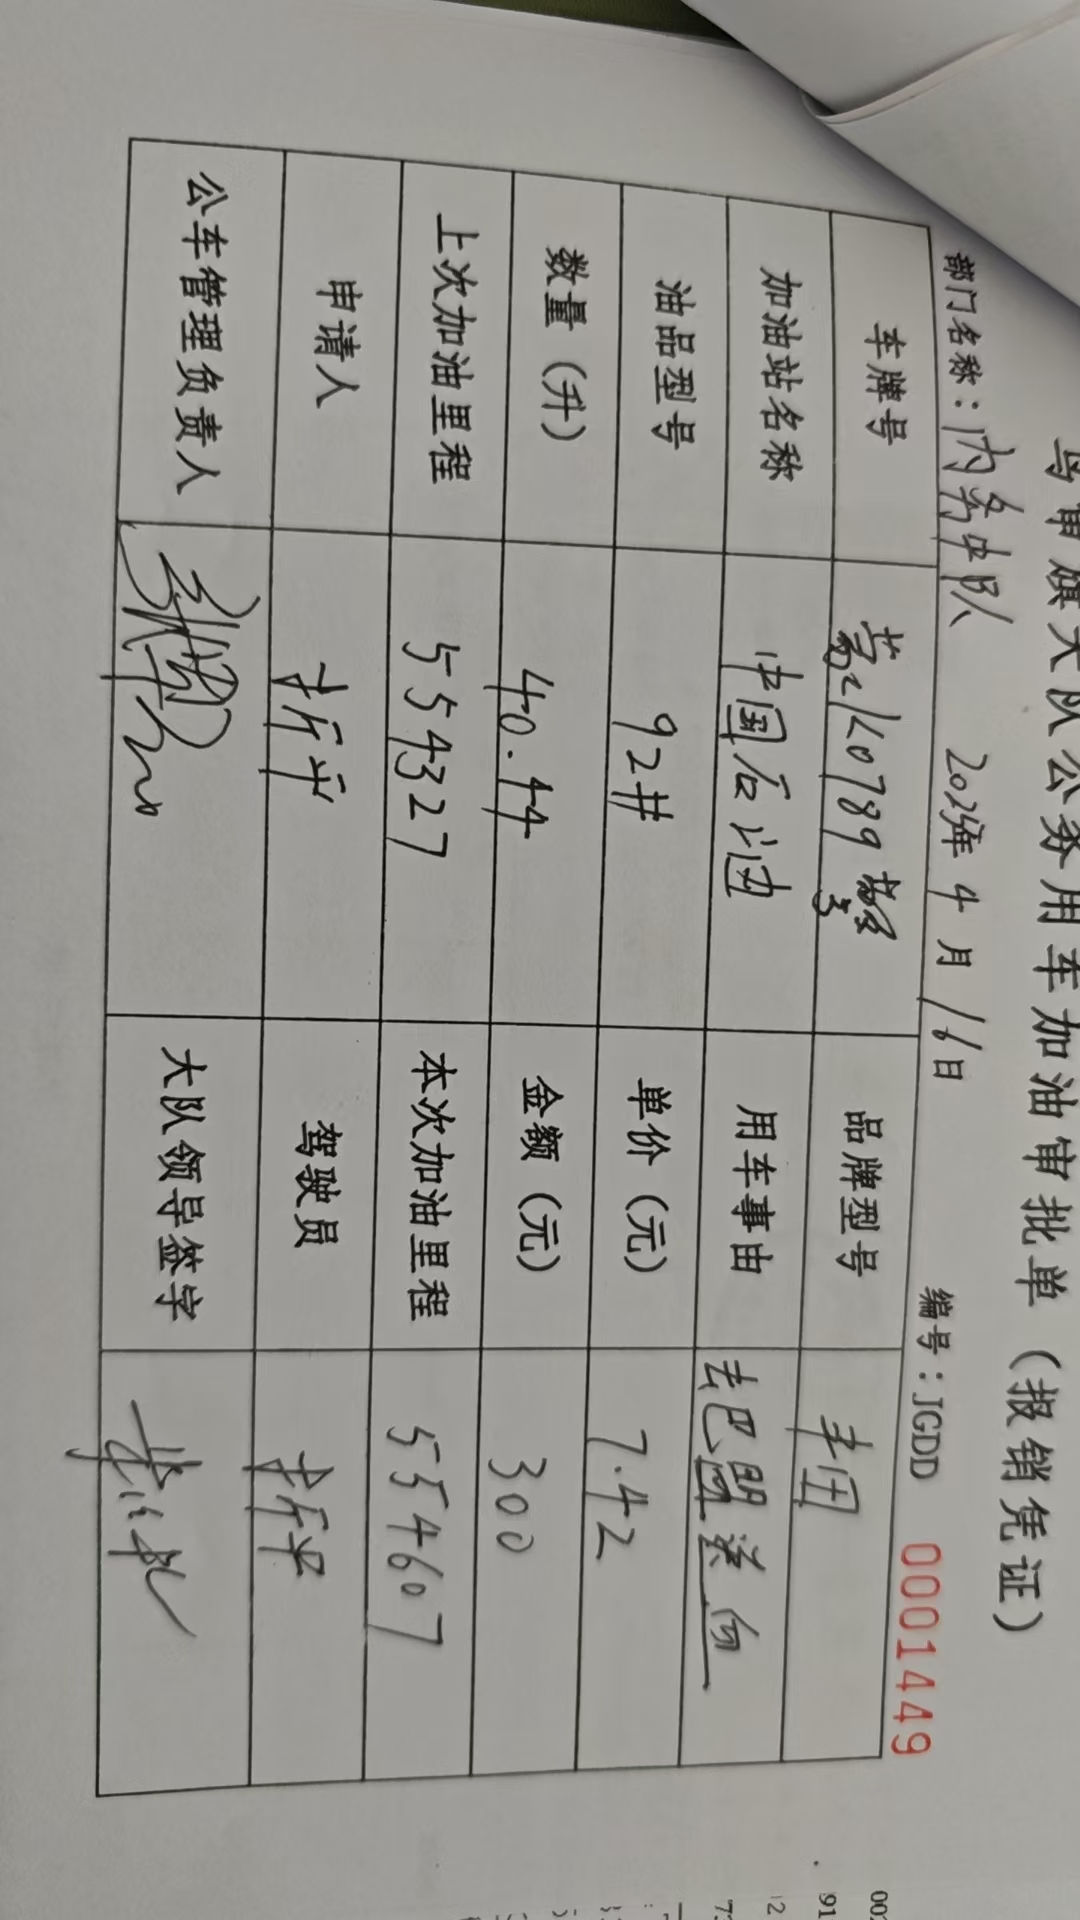 乌审旗大队公务用车加油审批单（报销凭证）
部门名称：内务中队 2025年4月16日 编号：JGDD 0001449
车牌号 蒙K0789警 品牌型号 丰田
加油站名称 中国石油 用车事由 去巴盟送
油品型号 92# 单价（元） 7.42
数量（升） 40.44 金额（元） 300
上次加油里程 554327 本次加油里程 555467
申请人 驾驶员
公车管理负责人 大队领导签字